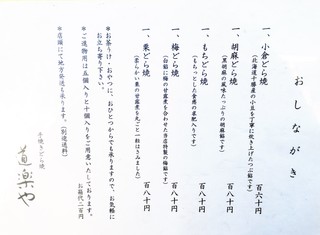 おしながき
一、小倉どら焼 百六十円
(北海道十勝産の小豆を丁寧に炊き上げたつぶ餡です)
一、胡麻どら焼 百八十円
(黒胡麻の風味たっぷりの胡麻餡です)
一、もちどら焼 百八十円
(もちっとした食感の求肥入りです)
一、梅どら焼 百八十円
(白餡に梅の甘露煮を合わせた当店特製の梅餡です)
一、栗どら焼 百八十円
(柔らかい栗の甘露煮を丸ごと一個はさみました)
*お茶うけ、おやつに、おひとつからでも承りますので、お気軽に
お立ち寄り下さい。
*ご進物用は五個入りと十個入りをご用意いたしております。
お箱代二百円
*店頭にて地方発送も承ります。(別途送料)
手焼きどら焼
道楽や